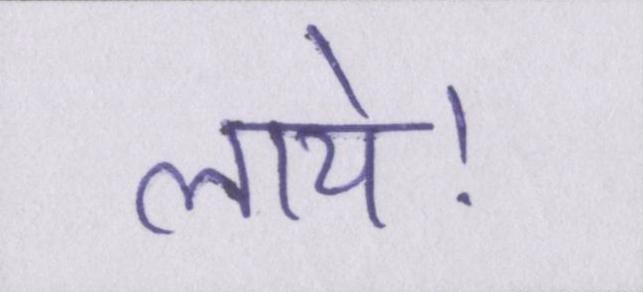 लाये!